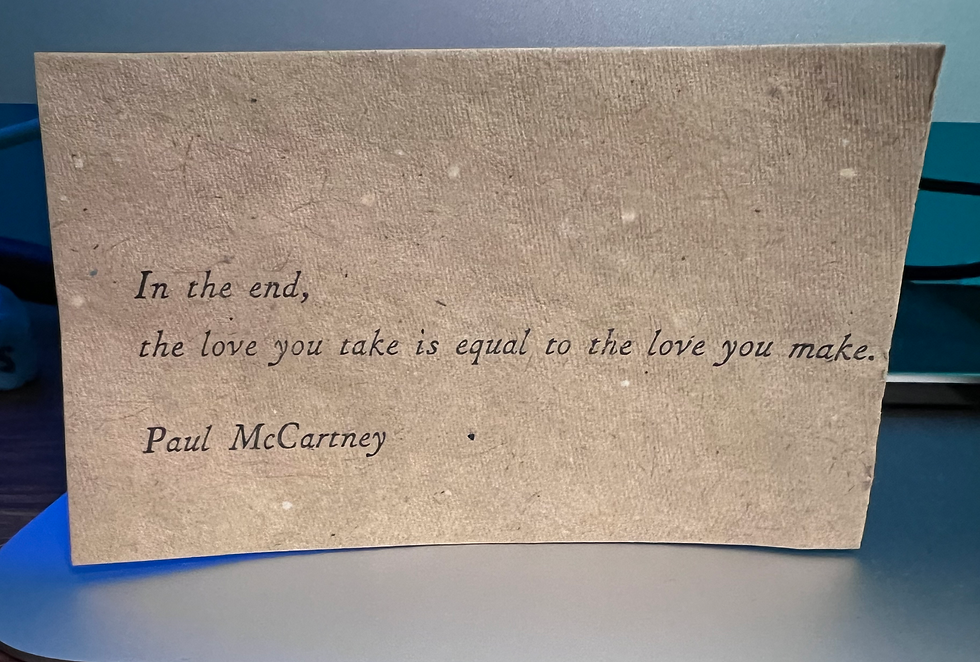 In the end,
the love you take is equal to the love you make.
Paul McCartney